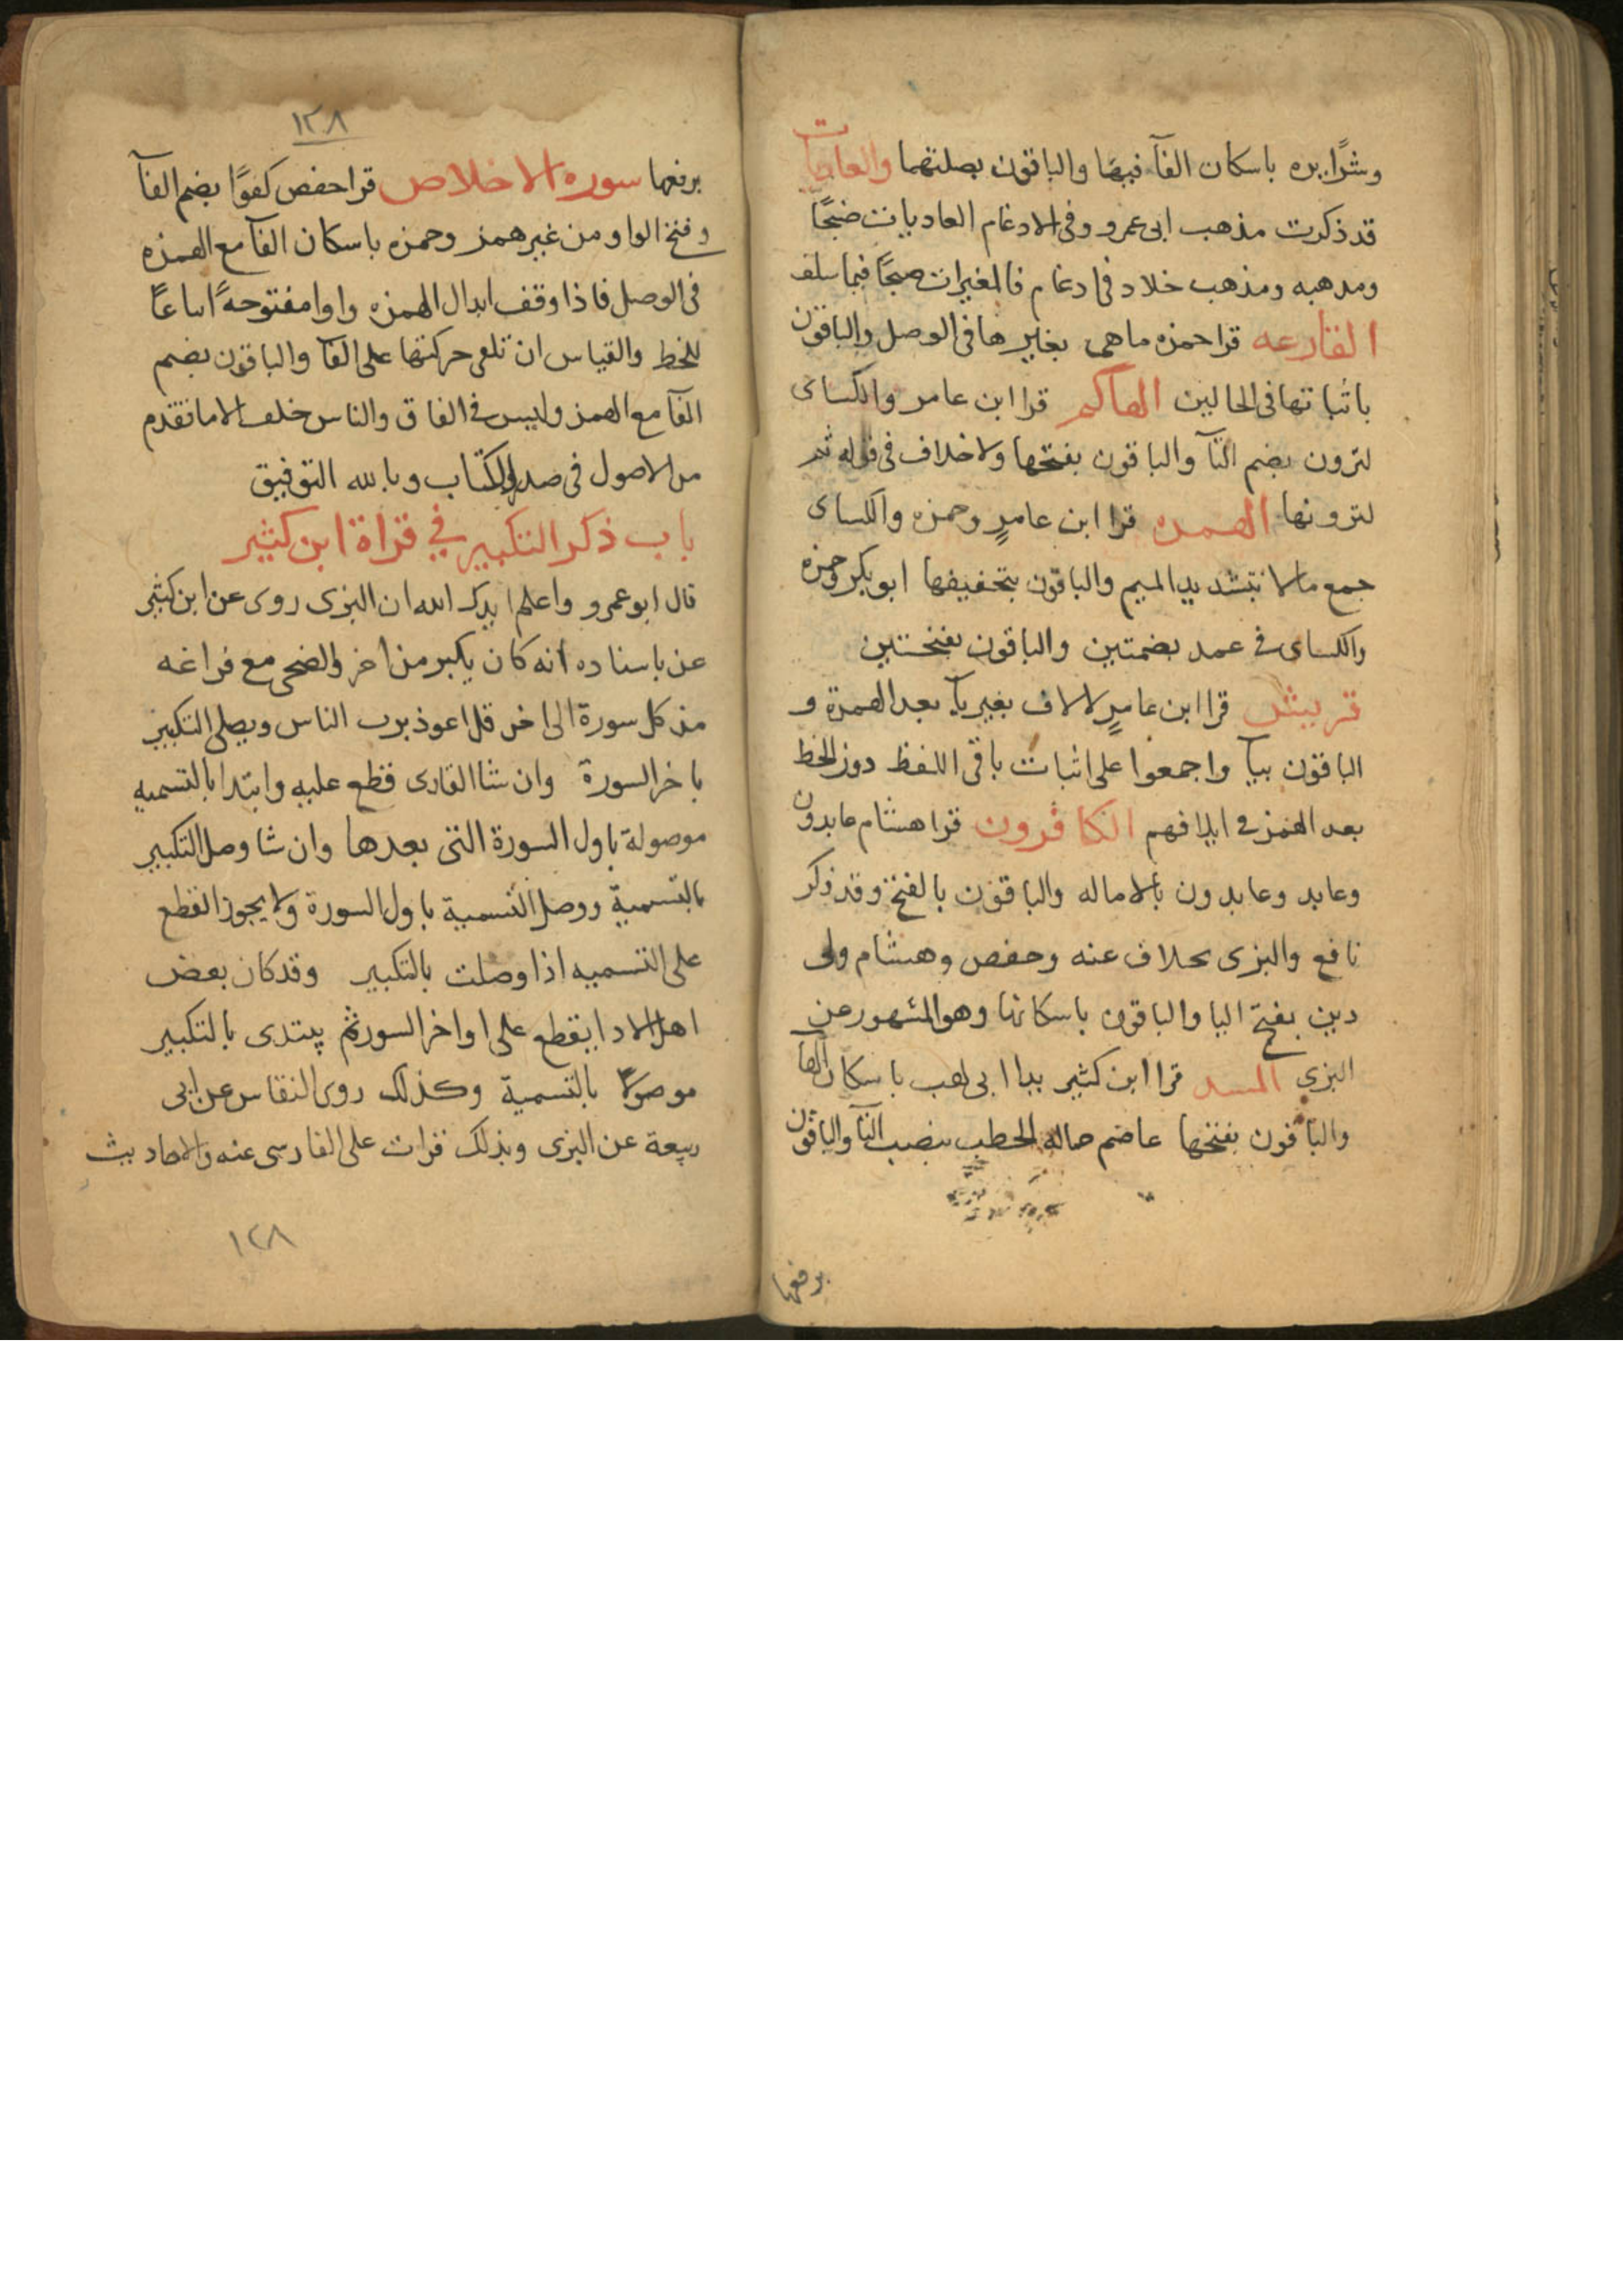 وشرًا يره باسكان الهآ فيهما والباقون بصلتهما والعاديات
قد ذكرت مذهب ابى عمرو وفى الادغام العاديات ضبحًا
ومدهبه ومذهب خلاد فى ادغام فالمغيرات صبحًا فيما سلف
القارعه قرا حمزه ما هى بغير ها فى الوصل والباقون
باثباتها فى الحالين الهاكم قرا ابن عامر والكساى
لترون بضم التآ والباقون بفتحها ولا خلاف فى قوله ثم
لترونها الهمزه قرا ابن عامرٍ وحمزه والكساى
جمع مالا بتشديد الميم والباقون بتخفيفها ابو بكر وحمزه
والكساى فى عمد بضمتين والباقون بفتحتين
قريش قرا ابن عامرٍ لالاف بغير يآ بعد الهمزة و
الباقون بيآ واجمعوا على اثبات باقى اللفظ دون الخط
بعد الهمز فى ايلافهم الكافرون قرا هشام عابدون
وعابد وعابدون بالاماله والباقون بالفتح وقد ذكر
نافع والبزى بخلاف عنه وحفص وهشام ولى
دين بفتح اليا والباقون باسكانها وهو المشهور عن
البزي المسد قرا ابن كثير يدا ابى لهب باسكان الهآ
والباقون بفتحها عاصم حماله الحطب بنصب التآ والباقون
برفعها
١٢٨
برفعها سوره الاخلاص قرا حفص كفوًا بضم الفآ
وفتح الواو من غير همز وحمزه باسكان الفآ مع الهمزه
فى الوصل فاذا وقف ابدال الهمزه واوا مفتوحهً اتباعًا
للخط والقياس ان تلقى حركتها على الفآ والباقون بضم
الفآ مع الهمز وليس فى الفاق والناس خلف الا ما تقدم
من الاصول فى صدر الكتاب وبالله التوفيق
باب ذكر التكبير في قراة ابن كثير
قال ابو عمرو واعلم ايدك الله ان البزى روى عن ابن كثير
عن باسناده انه كان يكبر من اخر والضحى مع فراغه
من كل سورة الى اخر قل اعوذ برب الناس ويصلى التكبير
باخر السورة وان شا القارى قطع عليه وابتدا بالتسميه
موصولة باول السورة التى بعدها وان شا وصل التكبير
بالتسمية ووصل التسمية باول السورة ولا يجوز القطع
على التسميه اذا وصلت بالتكبير وقد كان بعض
اهل الادا يقطع على اواخر السور ثم يبتدى بالتكبير
موصولا بالتسمية وكذلك روى النقاس عن ابى
ربيعة عن البزى وبذلك قرات على الفارسى عنه والاحاديث
١٢٨